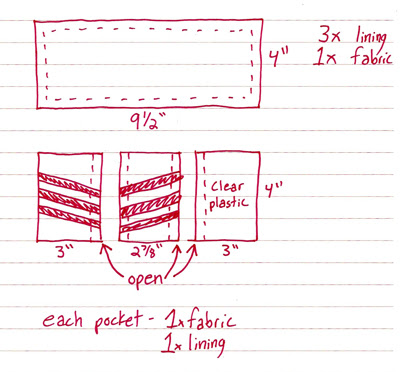 3x lining
1x fabric
4"
9 1/2"
clear
plastic
4"
3"
2 7/8"
3"
open
each pocket - 1x fabric
1x lining